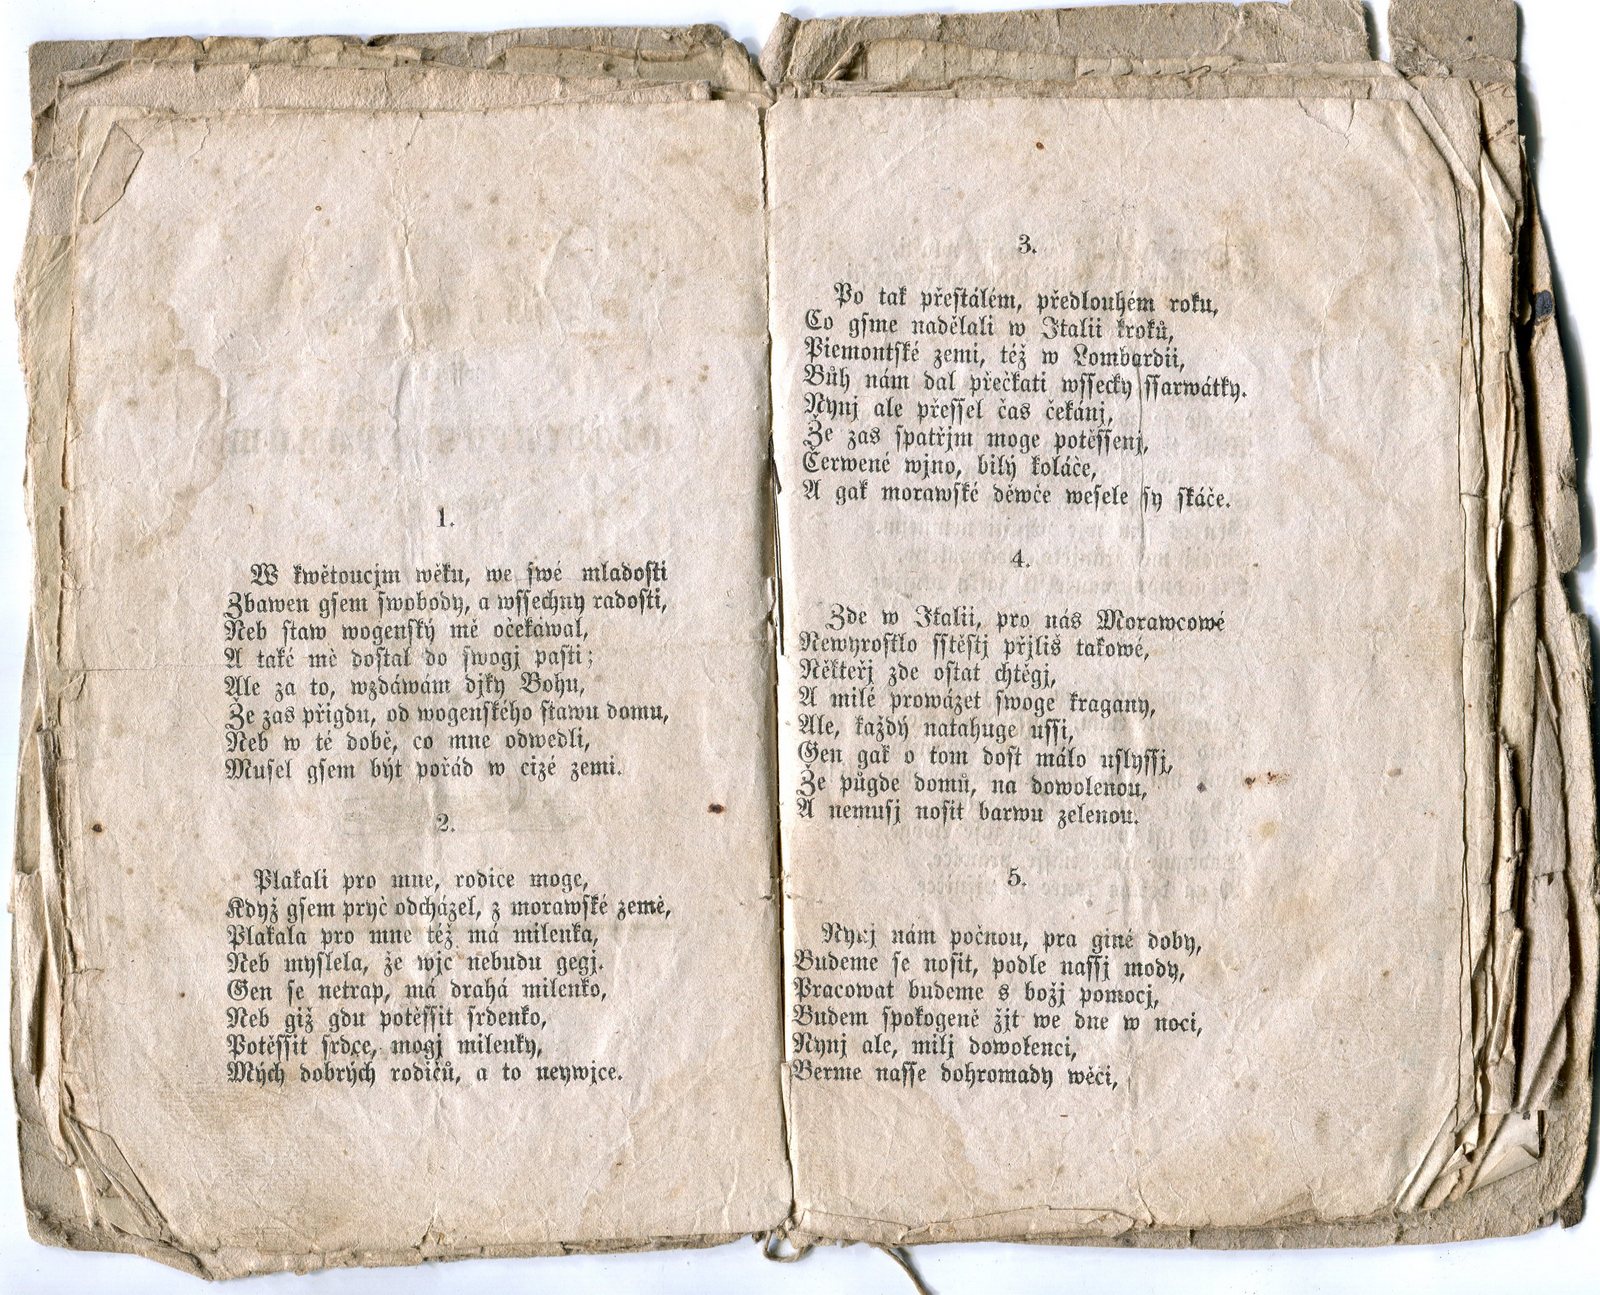 1.
W kwětoucjm wěku, we swé mladosti
Zbawen gsem swobody, a wssechny radosti,
Neb staw wogenský mě očekáwal,
A také mě dostal do swogj pasti;
Ale za to, wzdáwám djky Bohu,
Že zas přigdu, od wogenského stawu domu,
Neb w té době, co mne odwedli,
Musel gsem být pořád w cizé zemi.
2.
Plakali pro mne, rodice moge,
Když gsem pryč odcházel, z morawské země,
Plakala pro mne též má milenka,
Neb myslela, že wjc nebudu gegj.
Gen se netrap, má drahá milenko,
Neb giž gdu potěssit srdenko,
Potěssit srdce, mogj milenky,
Mých dobrých rodičů, a to neywjce.
3.
Po tak přestálém, předlouhém roku,
Co gsme nadělali w Italii kroků,
Piemontské zemi, též w Lombardii,
Bůh nám dal přečkati wssecky ssarwátky.
Nynj ale přessel čas čekánj,
Že zas spatřjm moge potěssenj,
Čerwené wjno, bilý koláče,
A gak morawské děwče wesele sy skáče.
4.
Zde w Italii, pro nás Morawcowé
Newyrostlo sstěstj přjliš takowé,
Někteřj zde ostat chtěgj,
A milé prowázet swoge kragany,
Ale, každý natahuge ussi,
Gen gak o tom dost málo uslyssj,
Že půgde domů, na dowolenou,
A nemusj nosit barwu zelenou.
5.
Nynj nám počnou, pra giné doby,
Budeme se nosit, podle nassj mody,
Pracowat budeme s božj pomocj,
Budem spokogeně žjt we dne w noci,
Nynj ale, milj dowolenci,
Berme nasse dohromady wěci,